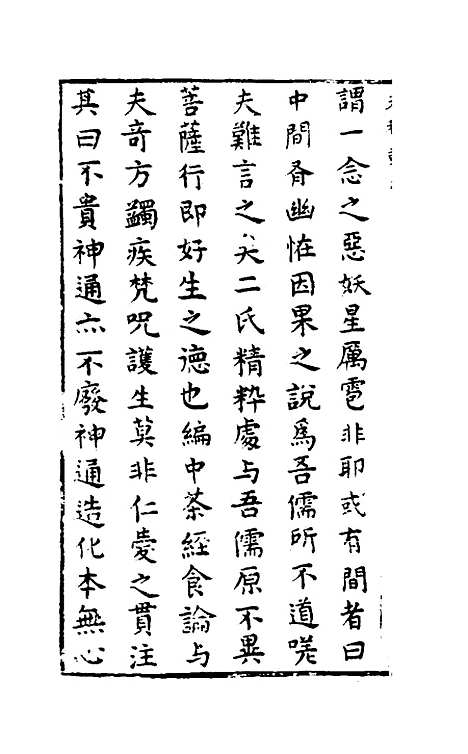 謂一念之惡妖星厲雹非耶或有間者曰
中間有幽恠因果之說爲吾儒所不道嗟
夫難言之矣二氏精粹處与吾儒原不異
菩薩行即好生之德也編中茶經食論与
夫奇方蠲疾梵呪護生莫非仁愛之貫注
其曰不貴神通亦不廢神通造化本無心